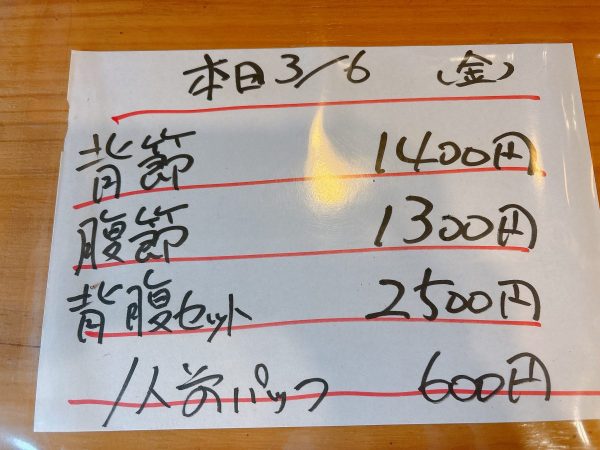 本日3/6 (金)
背節 1400円
腹節 1300円
背腹セット 2500円
1人前パック 600円